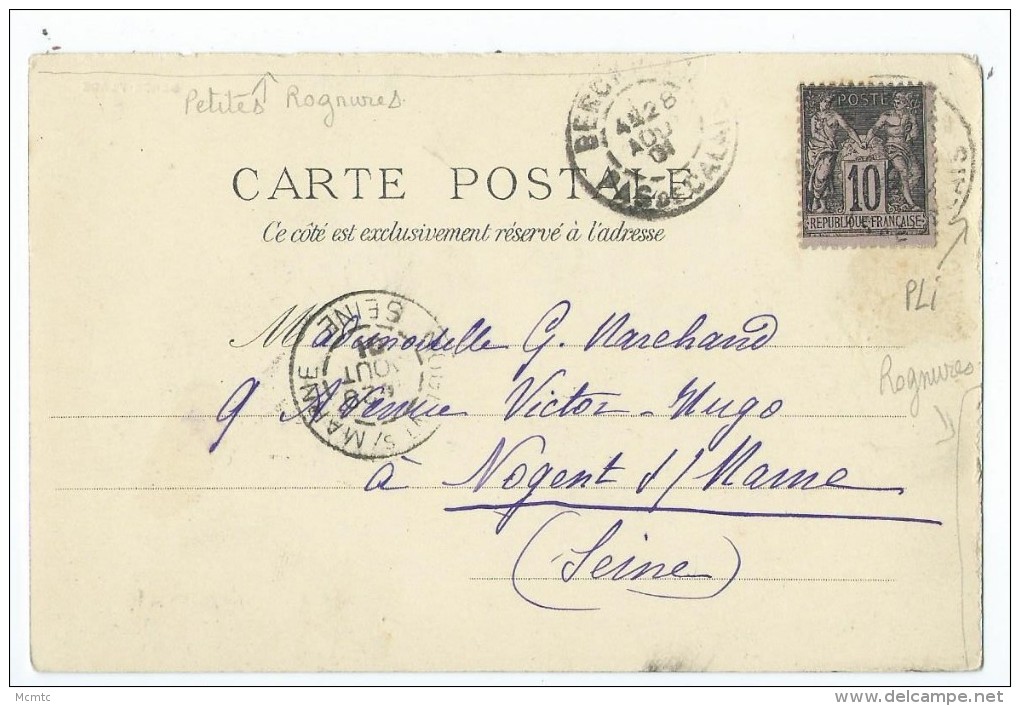 Petites Rognures
BERCK
28
AOU
01
PAS DE CALAIS
POSTE
10
REPUBLIQUE FRANÇAISE
CARTE POSTALE
Ce côté est exclusivement réservé à l'adresse
PLi
NOGENT S/ MARNE
SEINE
28
AOUT
01
Mademoiselle G. Marchand
Rognures
9 Avenue Victor-Hugo
à Nogent s/ Marne
(Seine)
Mcmtc
www.delcampe.net